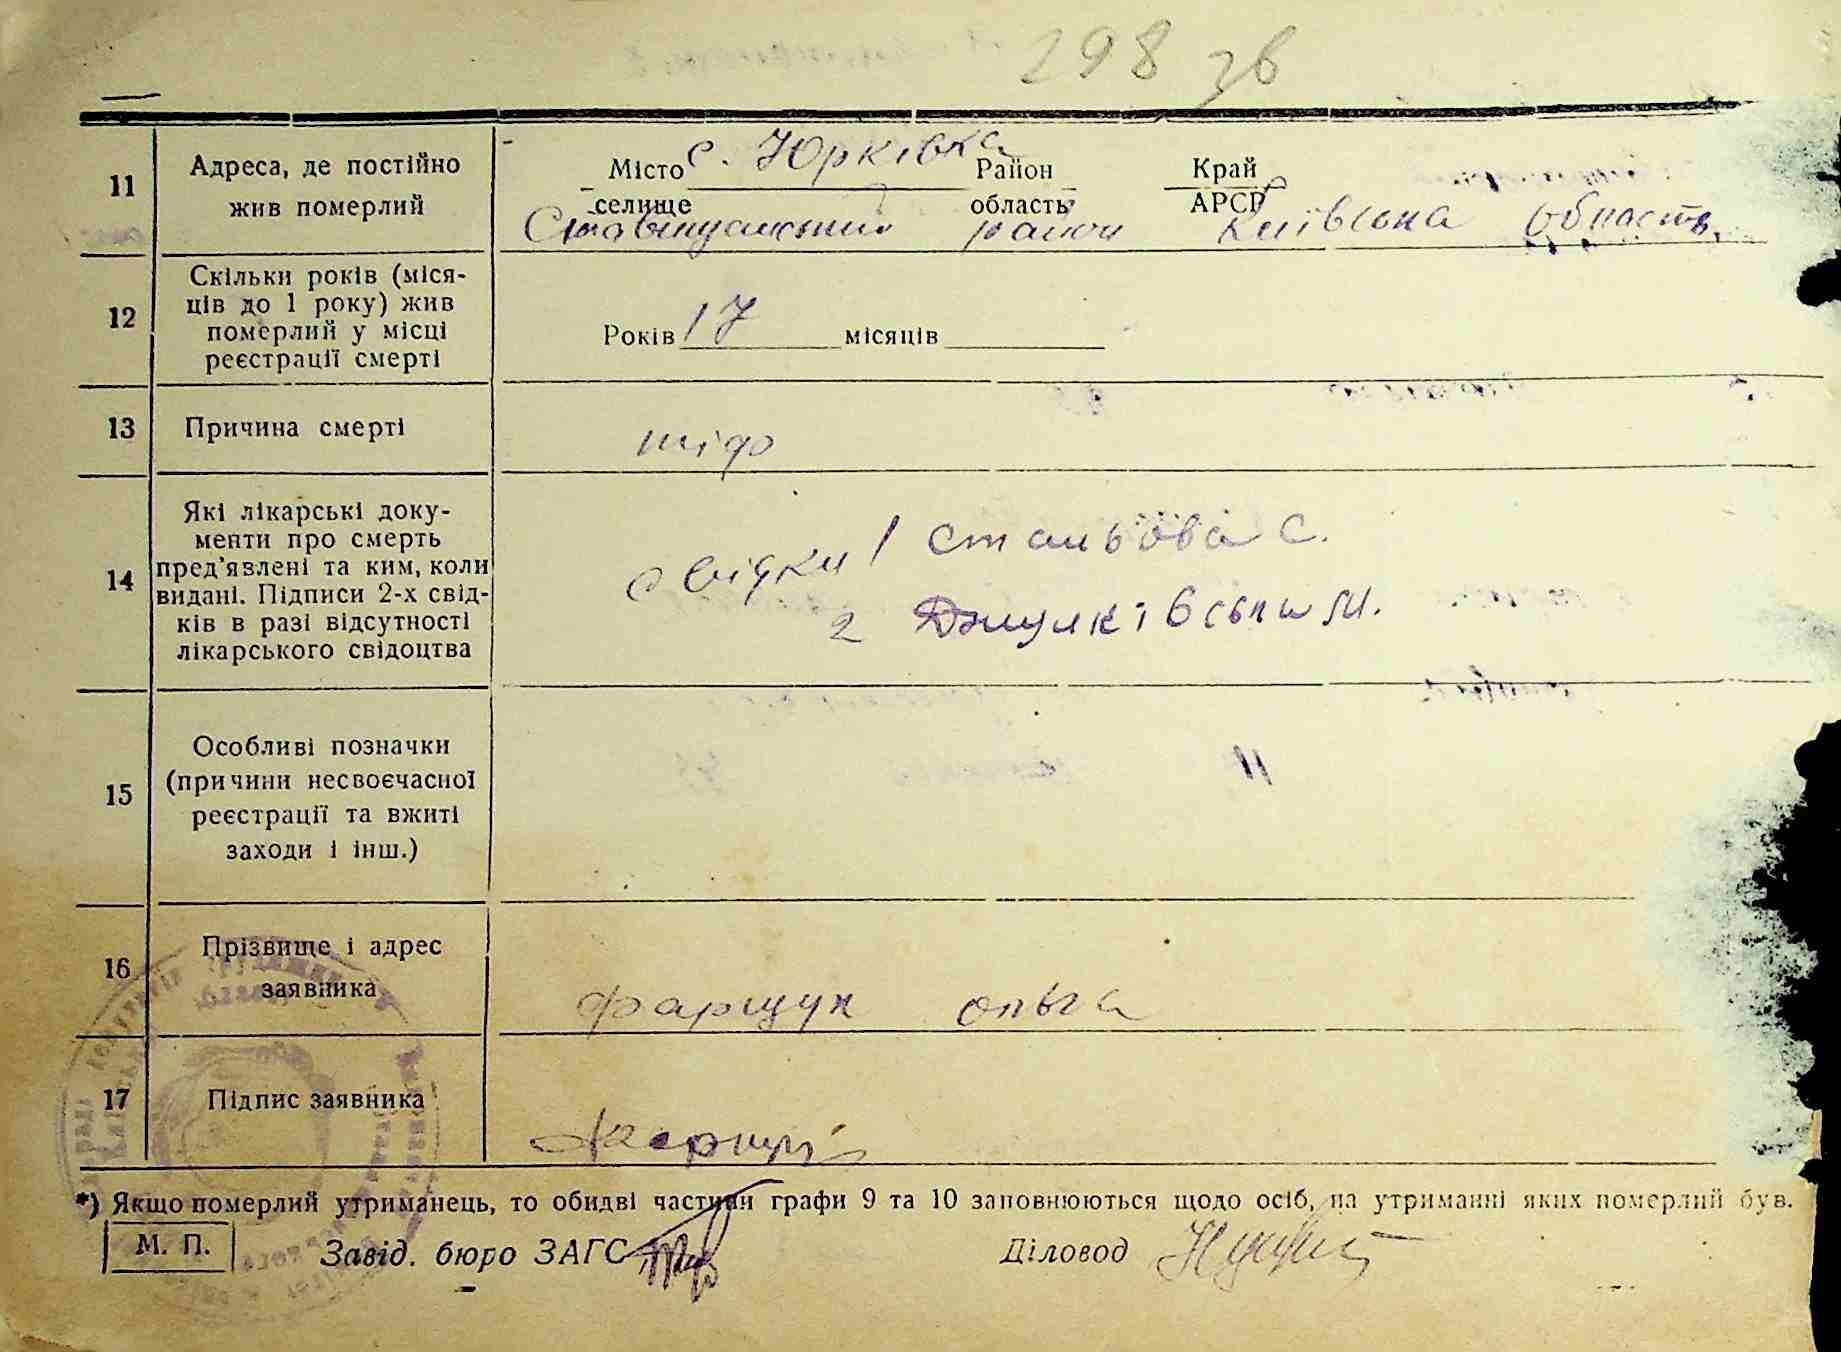 298 зв
11
Адреса, де постійно
жив померлий
Місто с. Юрківка Район Край
селище область АРСР
Ставищанський район Київська область.
12
Скільки років (міся-
ців до 1 року) жив
померлий у місці
реєстрації смерті
Років 17 місяців
13
Причина смерті
тіф
14
Які лікарські доку-
менти про смерть
пред'явлені та ким, коли
видані. Підписи 2-х свід-
ків в разі відсутності
лікарського свідоцтва
свідки 1 Стальова С.
2 М.
15
Особливі позначки
(причини несвоєчасної
реєстрації та вжиті
заходи і інш.)
16
Прізвище і адрес
заявника
Фарщук Ольга
17
Підпис заявника
*) Якщо померлий утриманець, то обидві частини графи 9 та 10 заповнюються щодо осіб, на утриманні яких померлий був.
М. П.
Завід. бюро ЗАГС
Діловод